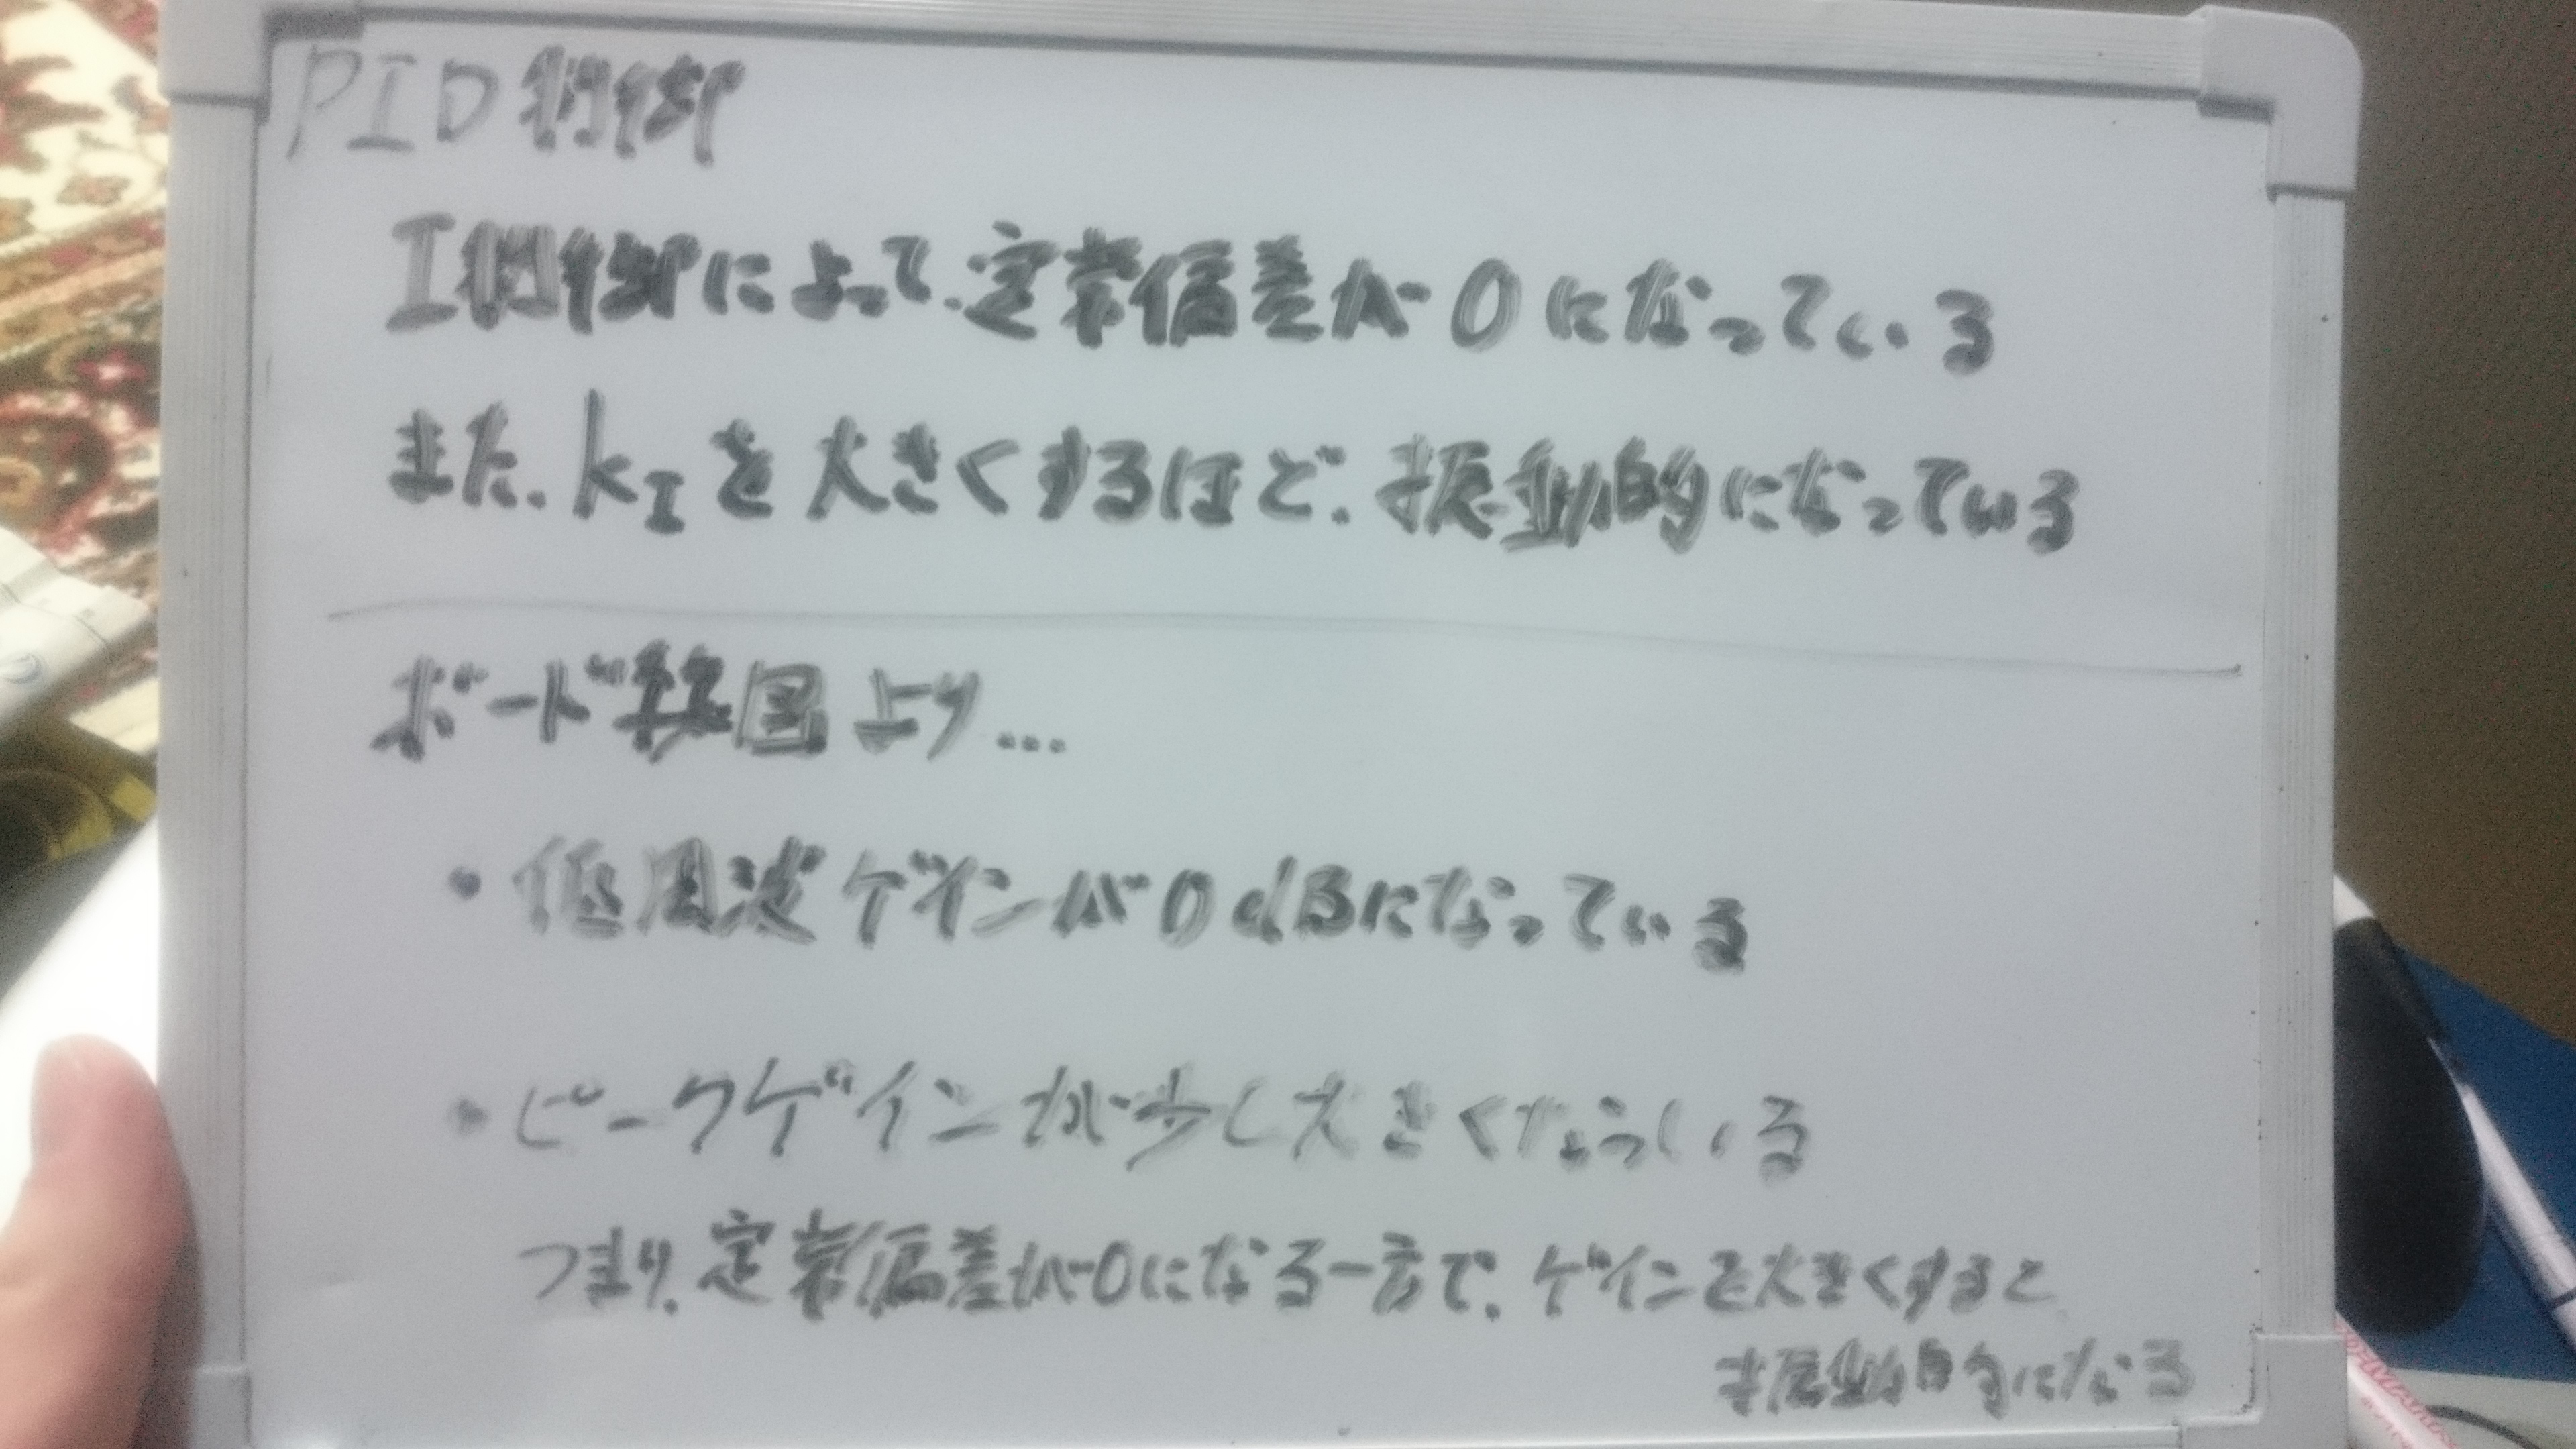 PID制御
I制御によって、定常偏差が0になっている
また、kIを大きくするほど、振動的になっている
ボード線図より...
・低周波ゲインが0dBになっている
・ピークゲインが少し大きくなっている
つまり、定常偏差が0になる一方で、ゲインを大きくすると
振動的になる